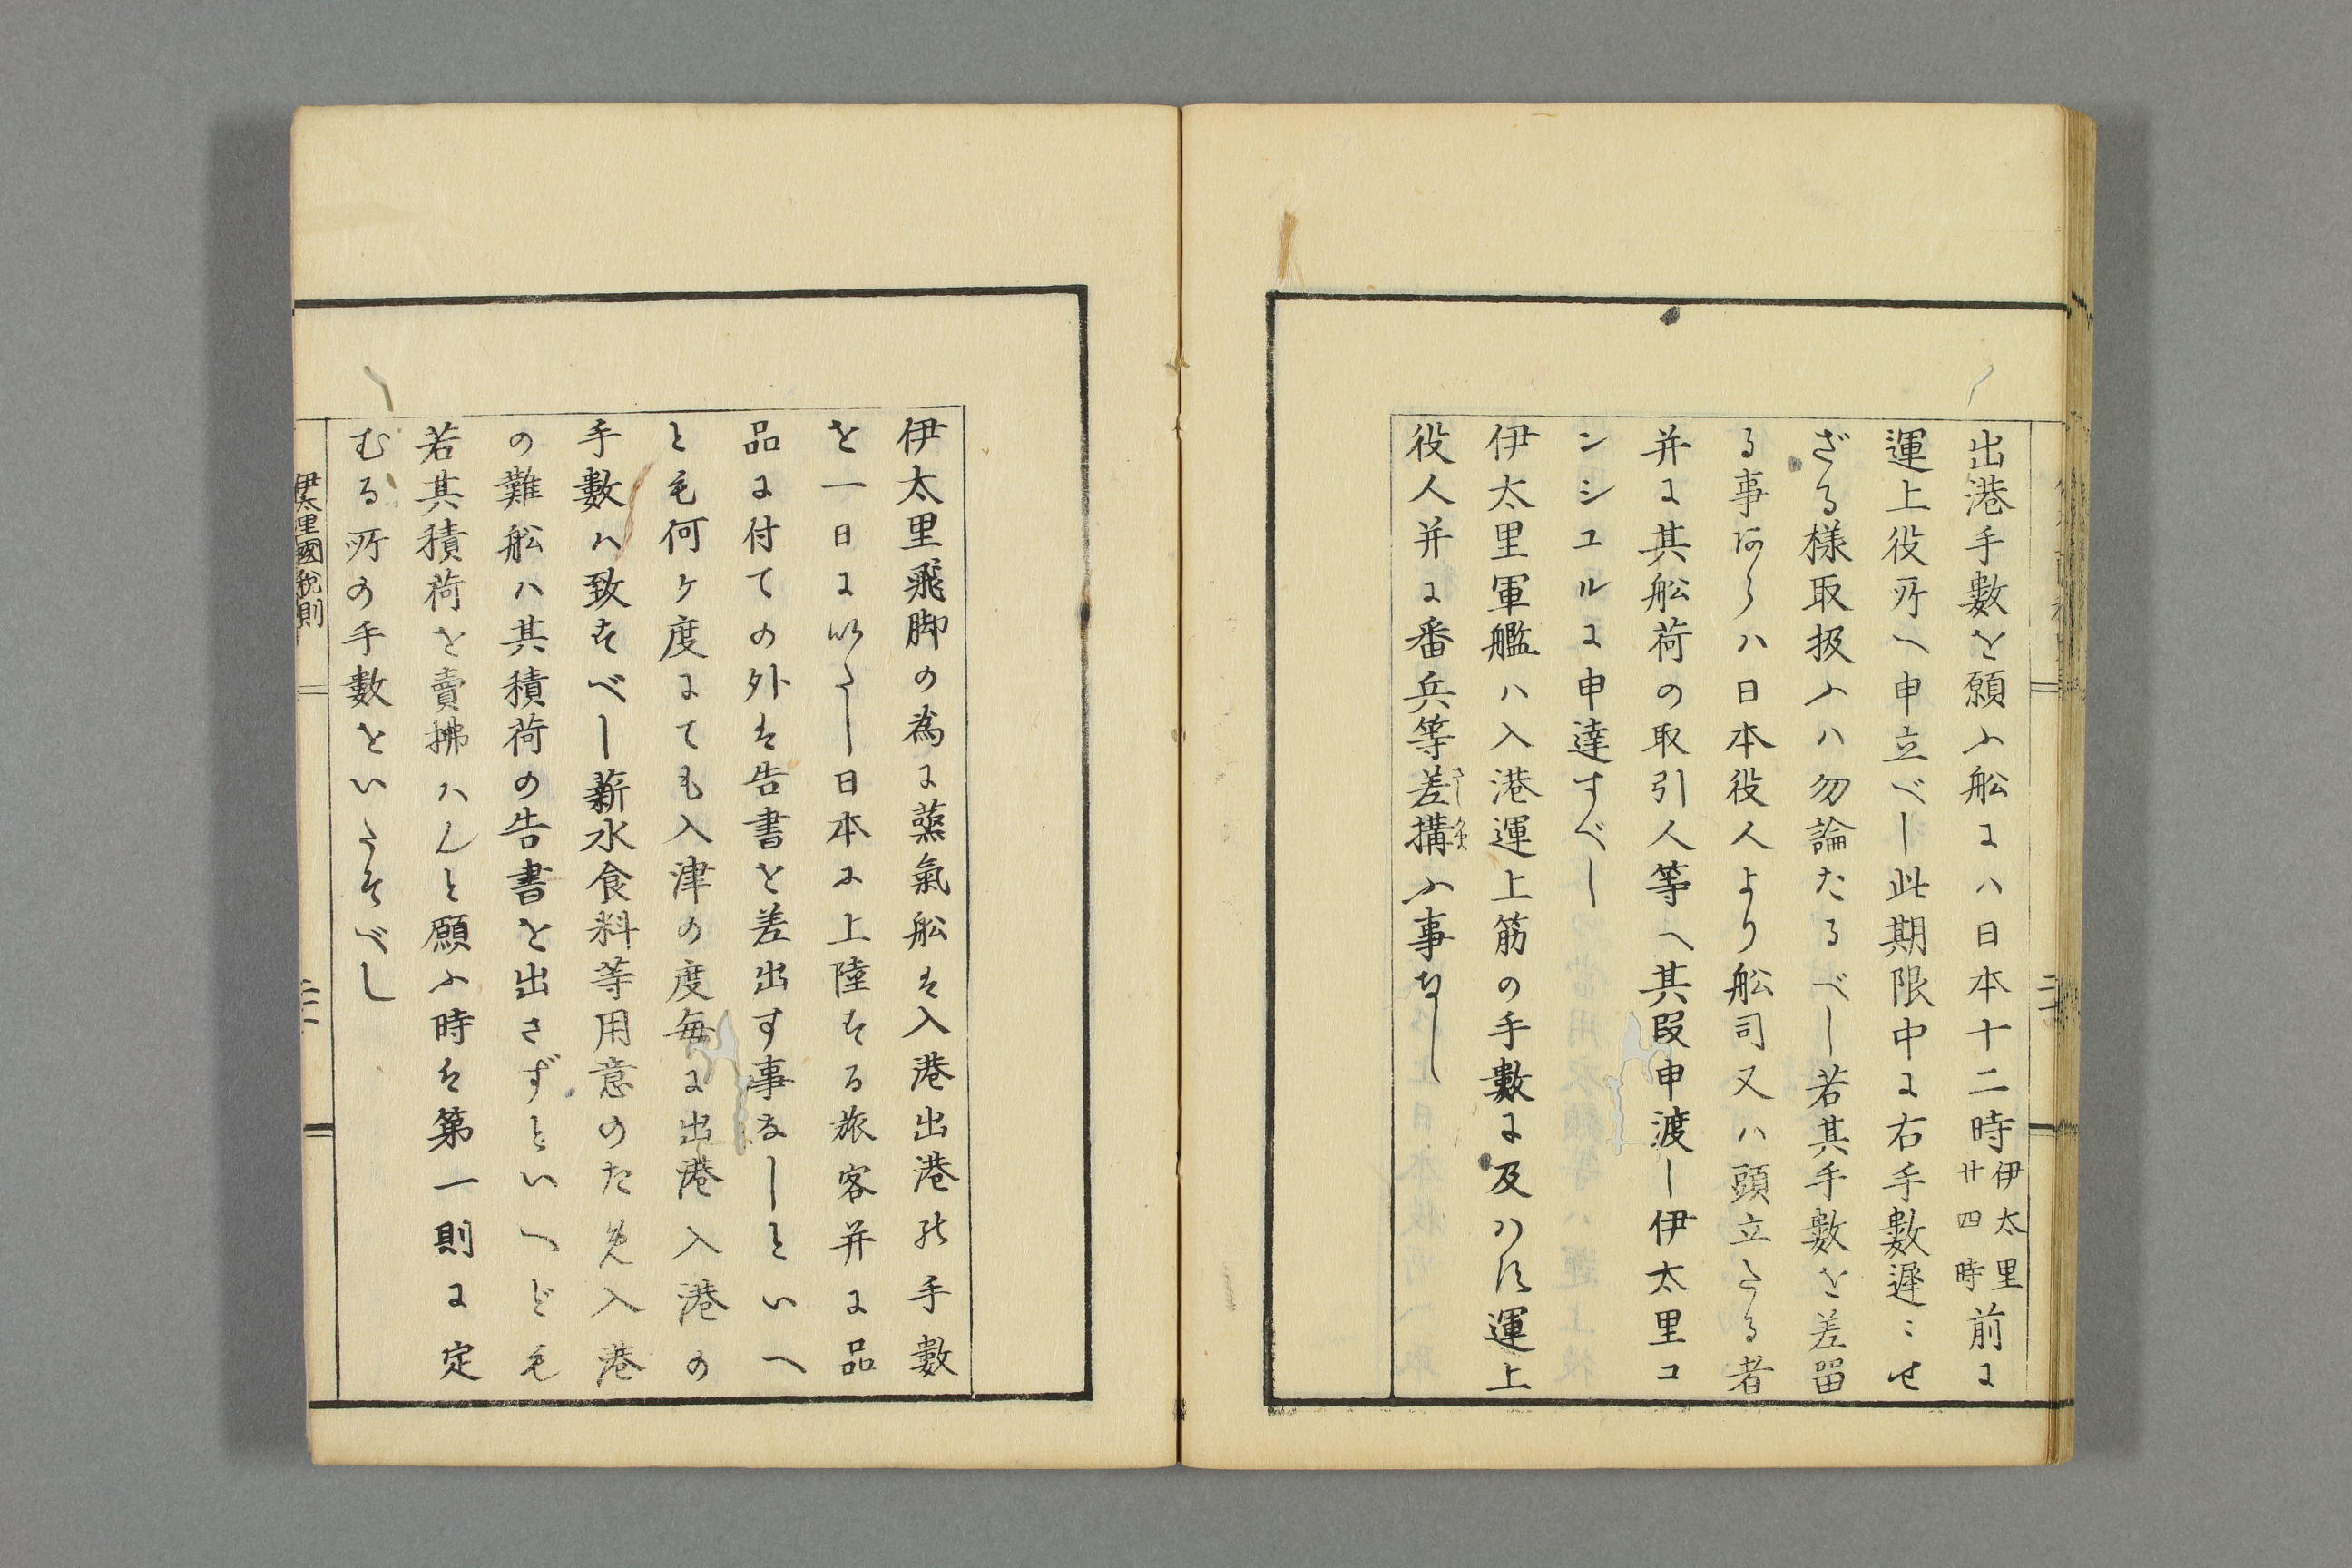 出港手數を願ふ舩にハ日本十二時伊太里廿四時前に
運上役所へ申立べし此期限中に右手數遅〻せ
ざる様取扱ふハ勿論たるべし若其手數を差留
る事あらハ日本役人より舩司又ハ頭立たる者
并に其舩荷の取引人等へ其段申渡し伊太里コ
ンシユルに申達すべし
伊太里軍艦ハ入港運上筋の手數に及ハす運上
役人并に番兵等差構ふ事なし
伊太里飛脚の為に蒸氣舩は入港出港の手數
を一日にいたし日本に上陸する旅客并に品
品に付ての外は告書を差出す事なしといへ
とも何ケ度にても入津の度毎に出港入港の
手數ハ致すべし薪水食料等用意のため入港
の難舩ハ其積荷の告書を出さずといへども
若其積荷を賣拂ハんと願ふ時は第一則に定
むる所の手數をいたすべし
伊太里國税則